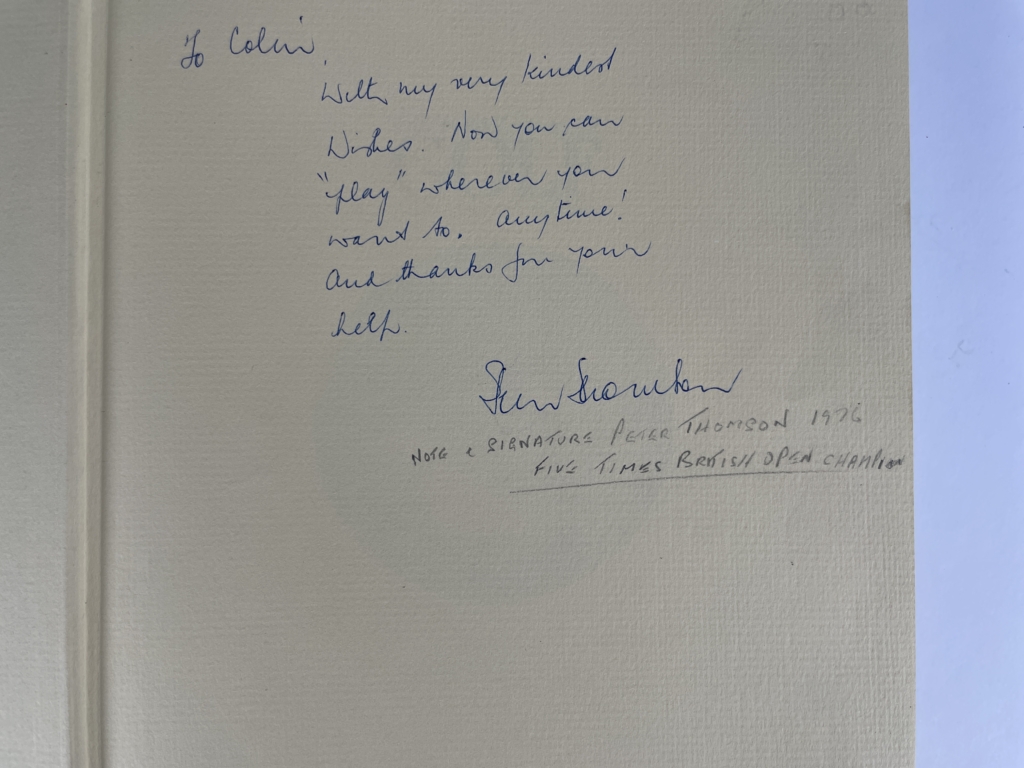 To Colin,
With my very kindest
Wishes. Now you can
"play" wherever you
want to. Anytime!
And thanks for your
help.
NOTE & SIGNATURE PETER THOMSON 1976
FIVE TIMES BRITISH OPEN CHAMPION